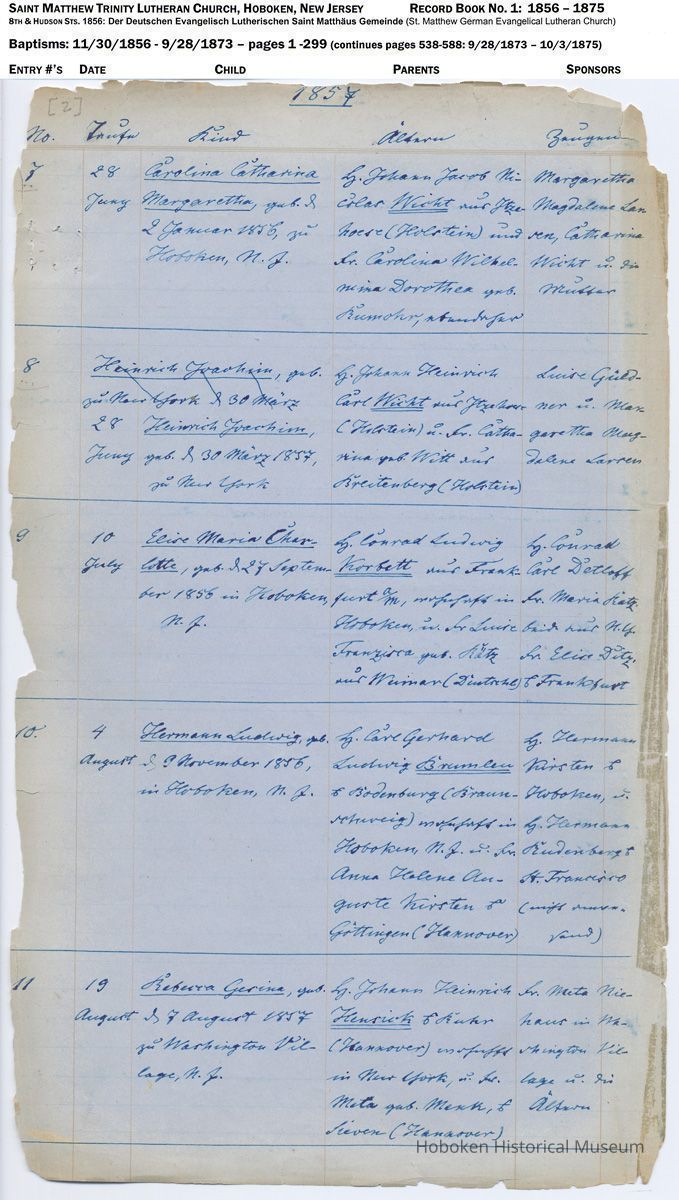 SAINT MATTHEW TRINITY LUTHERAN CHURCH, HOBOKEN, NEW JERSEY RECORD BOOK NO. 1: 1856 – 1875
8TH & HUDSON STS. 1856: Der Deutschen Evangelisch Lutherischen Saint Matthäus Gemeinde (St. Matthew German Evangelical Lutheran Church)
Baptisms: 11/30/1856 - 9/28/1873 – pages 1 -299 (continues pages 538-588: 9/28/1873 – 10/3/1875)
ENTRY #'S DATE CHILD PARENTS SPONSORS
[2] 1857
No. Taufe Kind Ältern Zeugen
7 28 Carolina Catharina H. Johann Jacob Ni- Margaretha
Juny Margaretha, geb. d. colas Wicht aus Itze- Magdalene Lar
2 Januar 1856, zu hoese (Holstein) und sen, Catharina
Hoboken, N. J. Fr. Carolina Wilhel- Wicht u. die
mina Dorothea geb. Mutter
Rumohr, ebendaher
8 Heinrich Joachim, geb. H. Johann Heinrich Luise Güld-
zu New York d. 30 März Carl Wicht aus Itzehoe ner u. Mar
28 Heinrich Joachim, (Holstein) u. Fr. Catha- garetha Mag-
Juny geb. d. 30 März 1857, rina geb Witt aus dalena Larsen
zu New York Breitenberg (Holstein)
9 10 Elise Maria Char- H. Conrad Ludwig H. Conrad
July lotte, geb. d. 27 Septem- Korbett aus Frank- Carl Detloff
ber 1856 in Hoboken, furt a/M, wohnhaft in Fr. Maria Katz
N. J. Hoboken, u. Fr Luise beide aus N.Y.
Franzisca geb. Kätz Fr. Elise Ditz
aus Weimar (Deutschl) Frankfurt
10. 4 Hermann Ludwig, geb. H. Carl Gerhard H. Hermann
August d. 9 November 1856, Ludwig Brumleu Kirsten
in Hoboken, N. J. Bodenburg (Braun- Hoboken, u.
schweig) wohnhaft in H. Hermann
Hoboken, N. J. u. Fr. Rudenberg
Anna Helene Au- St. Francisco
guste Kirsten (nicht anwe-
Göttingen (Hannover) send)
11 19 Rebecca Gesina, geb. H. Johann Heinrich Fr. Meta Nie-
August d. 7 August 1857 Hensick haus in Wa-
zu Washington Vil- (Hannover) wohnhaft shington Vil-
lage, N. J. in New York, u. Fr. lage u. die
Meta geb. Menk, Ältern
Sieven (Hannover)
Hoboken Historical Museum